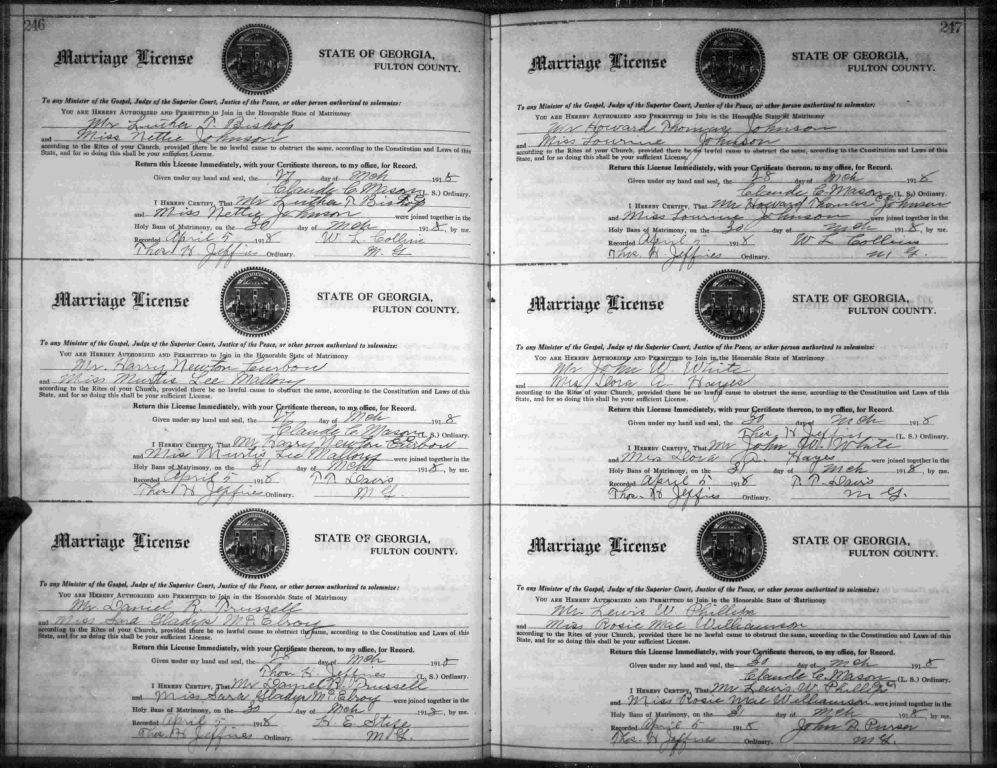 246
Marriage License
STATE OF GEORGIA,
FULTON COUNTY.
To any Minister of the Gospel, Judge of the Superior Court, Justice of the Peace, or other person authorized to solemnize:
YOU ARE HEREBY AUTHORIZED AND PERMITTED to Join in the Honorable State of Matrimony
Mr Luther T. Bishop
and Miss Nettie Johnson
according to the Rites of your Church, provided there be no lawful cause to obstruct the same, according to the Constitution and Laws of this
State, and for so doing this shall be your sufficient License.
Return this License Immediately, with your Certificate thereon, to my office, for Record.
Given under my hand and seal, the 27 day of Mch 1918
Claude C. Mason (L. S.) Ordinary.
I HEREBY CERTIFY, That Mr Luther T. Bishop
and Miss Nettie Johnson were joined together in the
Holy Bans of Matrimony, on the 30 day of Mch 1918, by me.
Recorded April 5 1918 W. L. Collins
Thos. H. Jeffries Ordinary. M. G.
Marriage License
STATE OF GEORGIA,
FULTON COUNTY.
To any Minister of the Gospel, Judge of the Superior Court, Justice of the Peace, or other person authorized to solemnize:
YOU ARE HEREBY AUTHORIZED AND PERMITTED to Join in the Honorable State of Matrimony
Mr. Harry Newton
and Miss Murtis Lee Mallory
according to the Rites of your Church, provided there be no lawful cause to obstruct the same, according to the Constitution and Laws of this
State, and for so doing this shall be your sufficient License.
Return this License Immediately, with your Certificate thereon, to my office, for Record.
Given under my hand and seal, the 27 day of Mch 1918
Claude C. Mason (L. S.) Ordinary.
I HEREBY CERTIFY, That Mr. Harry Newton
and Miss Murtis Lee Mallory were joined together in the
Holy Bans of Matrimony, on the 31 day of Mch 1918, by me.
Recorded April 5 1918 Davis
Thos H Jeffries Ordinary. M. G.
Marriage License
STATE OF GEORGIA,
FULTON COUNTY.
To any Minister of the Gospel, Judge of the Superior Court, Justice of the Peace, or other person authorized to solemnize:
YOU ARE HEREBY AUTHORIZED AND PERMITTED to Join in the Honorable State of Matrimony
Mr Daniel R. Trussell
and Miss Sara Gladys McElroy
according to the Rites of your Church, provided there be no lawful cause to obstruct the same, according to the Constitution and Laws of this
State, and for so doing this shall be your sufficient License.
Return this License Immediately, with your Certificate thereon, to my office, for Record.
Given under my hand and seal, the 28 day of Mch 1918
Thos H Jeffries (L. S.) Ordinary.
I HEREBY CERTIFY, That Mr Daniel R. Trussell
and Miss Sara Gladys McElroy were joined together in the
Holy Bans of Matrimony, on the 30 day of Mch 1918, by me.
Recorded April 5 1918 H. E. Stipe
Thos H Jeffries Ordinary. M. G.
247
Marriage License
STATE OF GEORGIA,
FULTON COUNTY.
To any Minister of the Gospel, Judge of the Superior Court, Justice of the Peace, or other person authorized to solemnize:
YOU ARE HEREBY AUTHORIZED AND PERMITTED to Join in the Honorable State of Matrimony
Mr Howard Thomas Johnson
and Miss Lourine Johnson
according to the Rites of your Church, provided there be no lawful cause to obstruct the same, according to the Constitution and Laws of this
State, and for so doing this shall be your sufficient License.
Return this License Immediately, with your Certificate thereon, to my office, for Record.
Given under my hand and seal, the 28 day of Mch 1918
Claude C. Mason (L. S.) Ordinary.
I HEREBY CERTIFY, That Mr Howard Thomas Johnson
and Miss Lourine Johnson were joined together in the
Holy Bans of Matrimony, on the 30 day of Mch 1918, by me.
Recorded April 5 1918 W L Collins
Thos. H Jeffries Ordinary. M. G.
Marriage License
STATE OF GEORGIA,
FULTON COUNTY.
To any Minister of the Gospel, Judge of the Superior Court, Justice of the Peace, or other person authorized to solemnize:
YOU ARE HEREBY AUTHORIZED AND PERMITTED to Join in the Honorable State of Matrimony
Mr John W. White
and Mrs Dora A. Hayes
according to the Rites of your Church, provided there be no lawful cause to obstruct the same, according to the Constitution and Laws of this
State, and for so doing this shall be your sufficient License.
Return this License Immediately, with your Certificate thereon, to my office, for Record.
Given under my hand and seal, the 30 day of Mch 1918
Thos. H Jeffries (L. S.) Ordinary.
I HEREBY CERTIFY, That Mr John W. White
and Mrs Dora A. Hayes were joined together in the
Holy Bans of Matrimony, on the 31 day of Mch 1918, by me.
Recorded April 5 1918 Davis
Thos. H Jeffries Ordinary. M. G.
Marriage License
STATE OF GEORGIA,
FULTON COUNTY.
To any Minister of the Gospel, Judge of the Superior Court, Justice of the Peace, or other person authorized to solemnize:
YOU ARE HEREBY AUTHORIZED AND PERMITTED to Join in the Honorable State of Matrimony
Mr Lewis W. Phillips
and Miss Rosie Mae Williamson
according to the Rites of your Church, provided there be no lawful cause to obstruct the same, according to the Constitution and Laws of this
State, and for so doing this shall be your sufficient License.
Return this License Immediately, with your Certificate thereon, to my office, for Record.
Given under my hand and seal, the 30 day of Mch 1918
Claude C. Mason (L. S.) Ordinary.
I HEREBY CERTIFY, That Mr Lewis W. Phillips
and Miss Rosie Mae Williamson were joined together in the
Holy Bans of Matrimony, on the 31 day of Mch 1918, by me.
Recorded April 5 1918 John D. Purser
Thos. H Jeffries Ordinary. M. G.